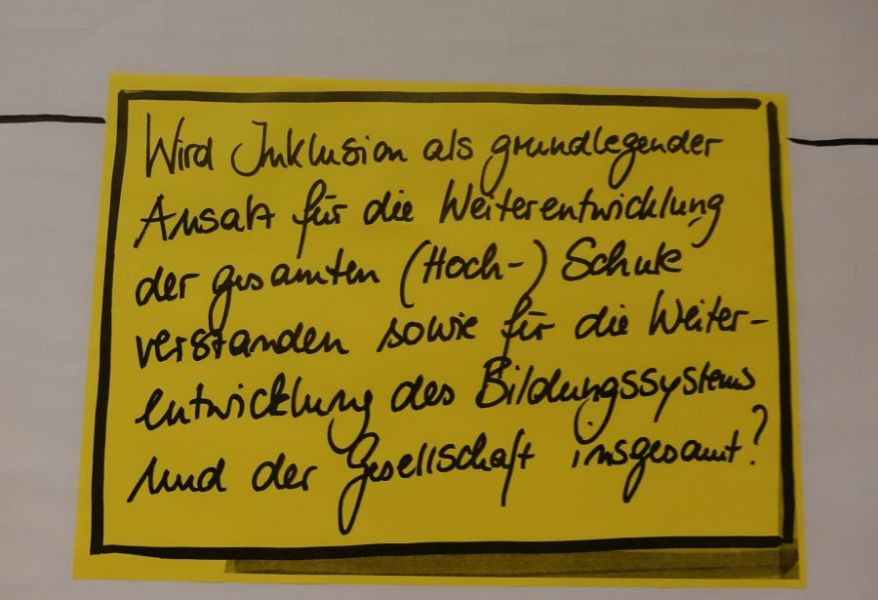 Wird Inklusion als grundlegender
Ansatz für die Weiterentwicklung
der gesamten (Hoch-) Schule
verstanden sowie für die Weiter-
entwicklung des Bildungssystems
und der Gesellschaft insgesamt?